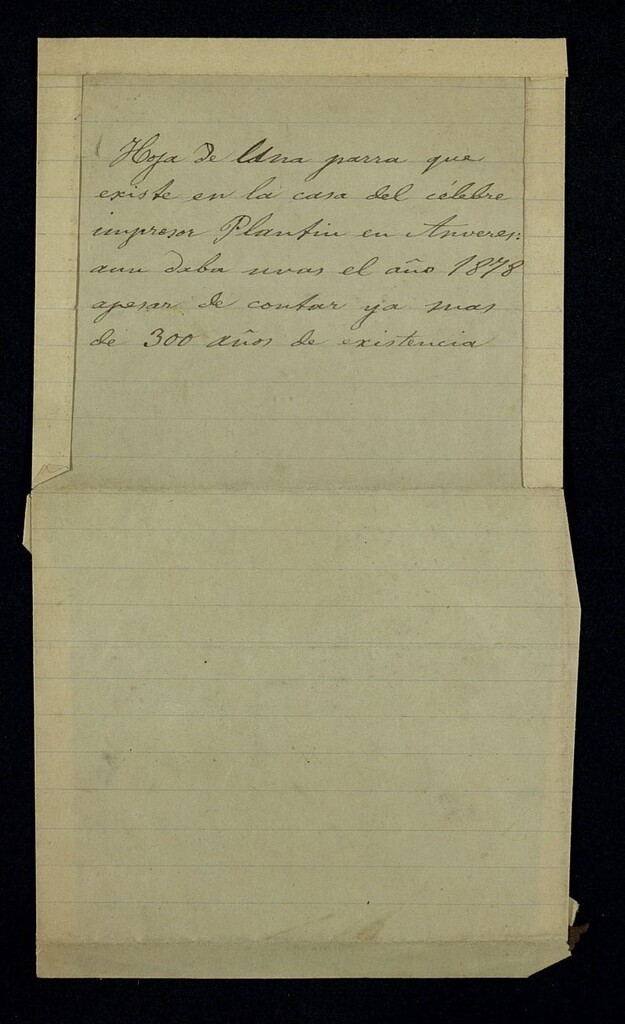 Hoja de Una parra que
existe en la casa del célebre
impresor Plantin en Anveres:
aun daba uvas el año 1878
apesar de contar ya mas
de 300 años de existencia